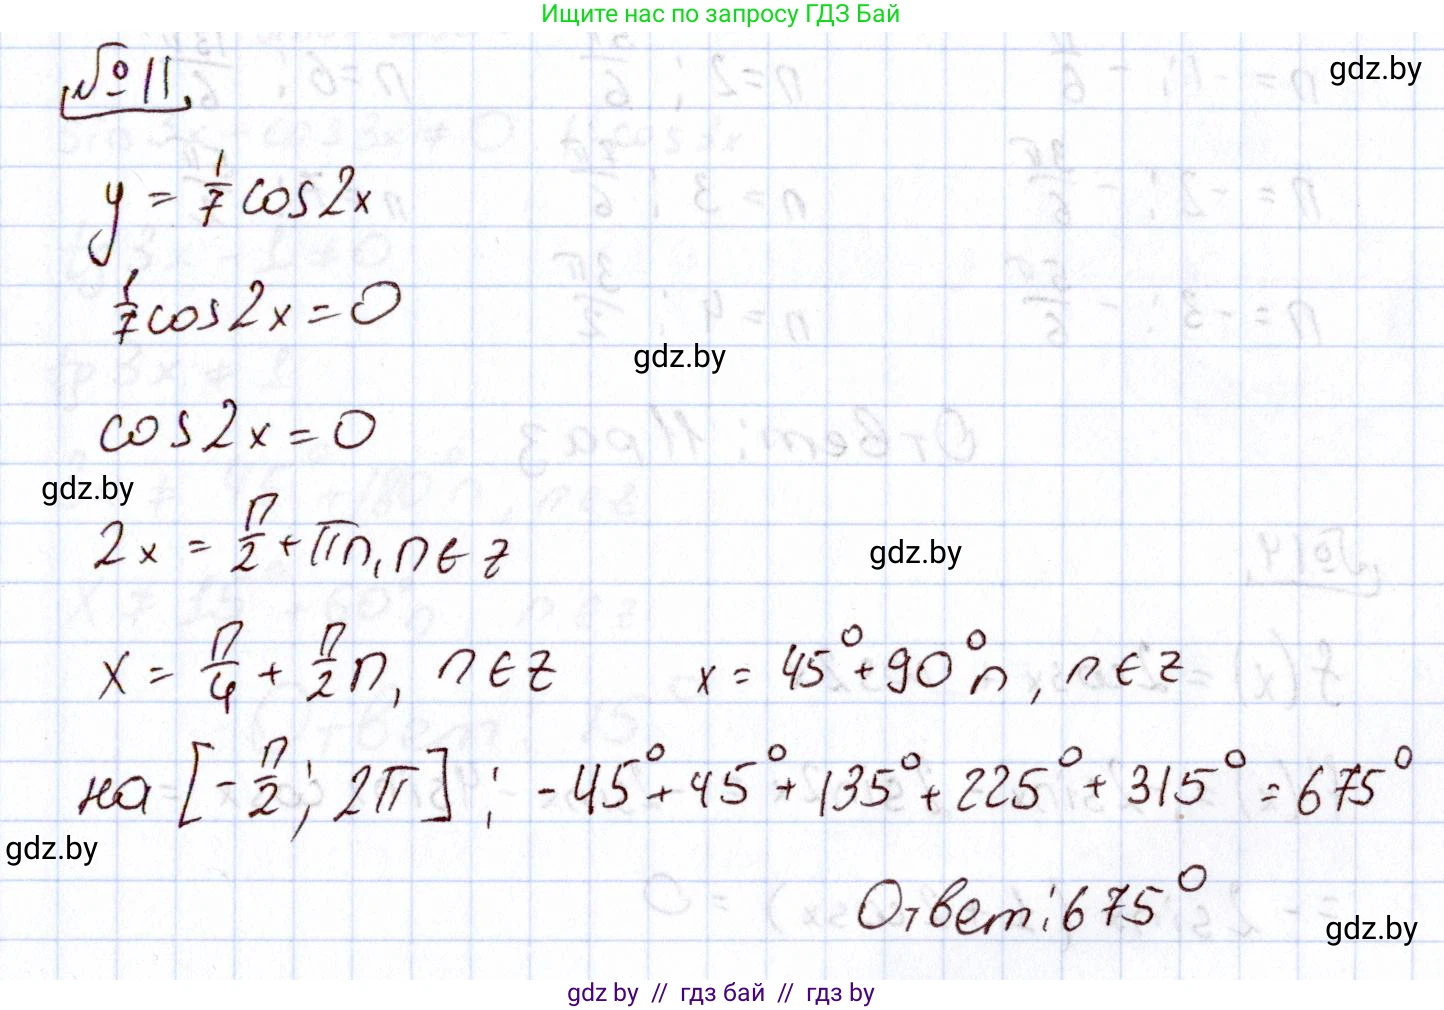 Ищите нас по запросу ГДЗ Бай
№11
gdz.by
y = 1/7 cos2x
1/7 cos2x = 0
gdz.by
cos2x = 0
gdz.by
2x = π/2 + πn, n ∈ z
gdz.by
x = π/4 + π/2 n, n ∈ z x = 45° + 90°n, n ∈ z
на [-π/2; 2π]; -45° + 45° + 135° + 225° + 315° = 675°
gdz.by
Ответ: 675°
gdz.by
gdz by // гдз бай // гдз by